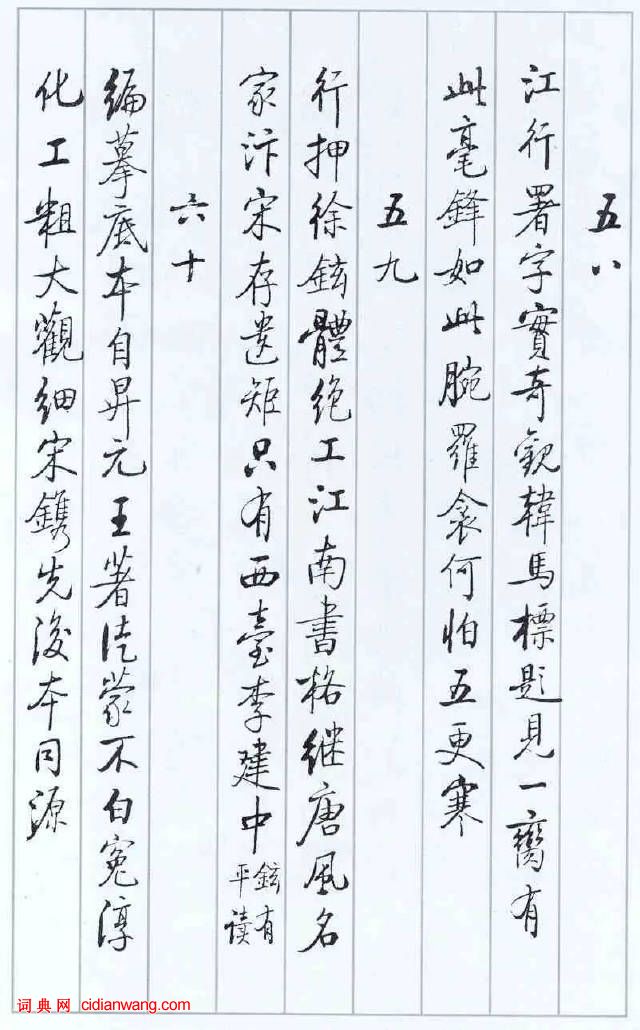 五八
江行署字實奇觀韓馬標題見一臠有
此毫鋒如此腕羅衾何怕五更寒
五九
行押徐鉉體絕工江南書格继唐風名
家汴宋存遺矩只有西臺李建中 鉉有平读
六十
編摹底本自昇元王著徒蒙不白冤淳
化工粗大觀細宋鐫先後本同源
词典网 cidianwang.com